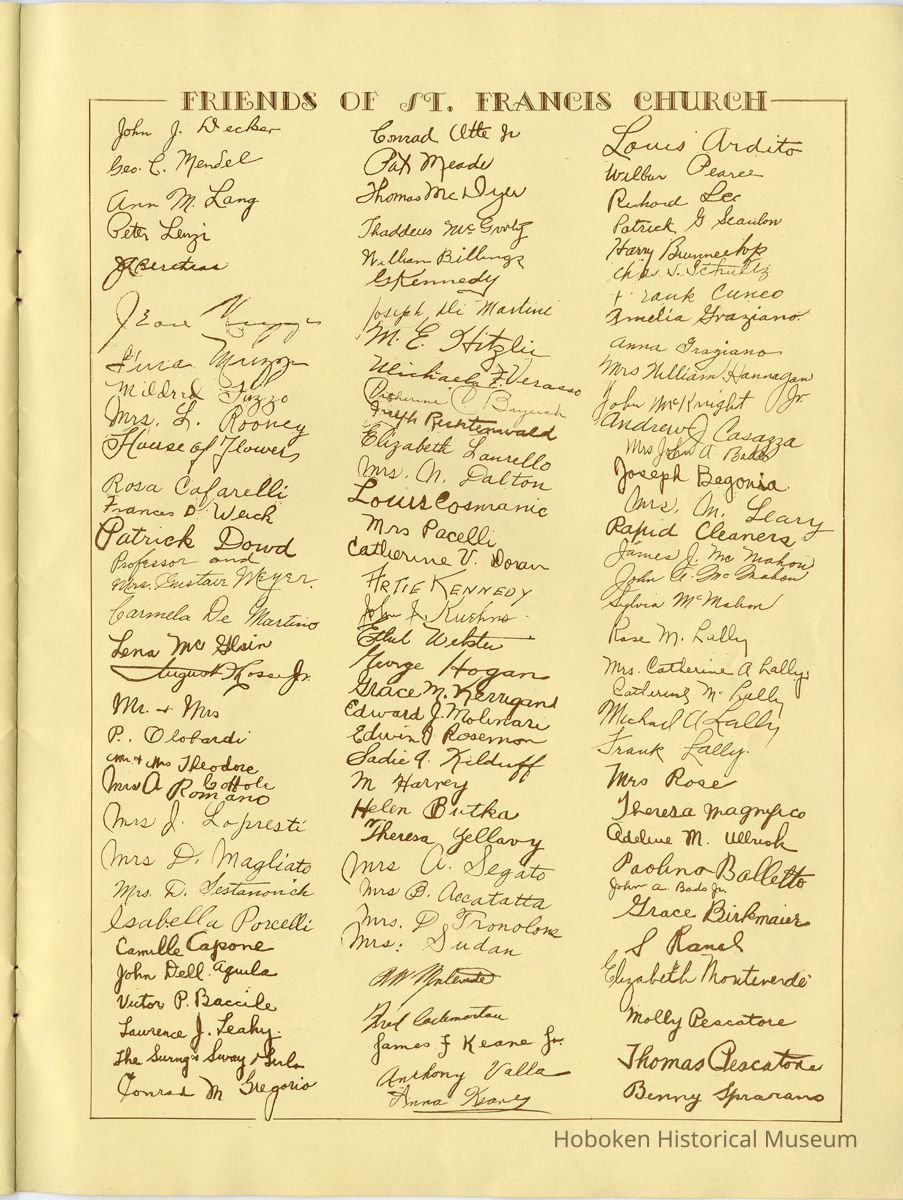 FRIENDS OF ST. FRANCIS CHURCH
John J. Decker
Geo. C. Mendel
Ann M. Lang
Peter Lenzi
Mildred Tuzzo
Mrs. L. Rooney
House of Flowers
Rosa Cafarelli
Frances D. Weick
Patrick Dowd
Professor and
Mrs. Gustave Meyer.
Carmela De Martino
Lena Mc Glsin
August Jr.
Mr. + Mrs
P. Olobardi
Mr. + Mrs Theodore
Mrs A Romano
Mrs J. Lopresti
Mrs D. Magliato
Mrs. D. Testanovich
Isabella Porcelli
Camille Capone
John Dell. Aquila
Victor P. Baccile
Laurence J. Leahy.
The Swing & Sway Girls
Conrad M Gregorio
Conrad Otte Jr
Pat Meade
Thomas Mc Dyer
Thaddeus McGovty
William Billings
G Kennedy
Joseph Di Martini
M. E. Hitzlir
Michaela F. Verasso
Catherine C
Joseph Richtenwald
Elizabeth Laurello
Mrs. N. Dalton
Louis Cosmanic
Mrs Pacelli
Catherine V. Doran
ARTIE KENNEDY
John J. Kuehns.
Ethel Webster
George Hogan
Grace M. Kerrigand
Edward J. Molinari
Edwin J Rosemon
Sadie A. Kilduff
M Harvey
Helen Butka
Theresa Zellavy
Mrs A. Segato
Mrs B. Accatatta
Mrs. D. Tronolone
Mrs. Sudan
Fred
James F Keane Jr.
Anthony Valla
Anna
Louis Ardito
Wilbur Pearce
Richard Lee
Patrick G Scanlon
Harry Brunnechop
Chas. J. Schultz
Frank Cuneo
Amelia Graziano.
Anna Graziano
Mrs William Hannagan Jr.
John McKnight
Andrew J Casazza
Mrs John A Bado
Joseph Begonia.
Mrs. M. Leary
Rapid Cleaners
James J. Mc Mahon
John A. Mc Mahon
Sylvia McMahon
Rose M. Lally
Mrs. Catherine A Lally
Catherine M. Lally
Michael A Lally
Frank Lally.
Mrs Rose
Theresa Magnifico
Adeline M. Ullrich
Paolino Balletto
John A. Bado Jr.
Grace Birkmaier
S Ranel
Elizabeth Monteverde
Molly Pescatore
Thomas Pescatore
Benny Sprarano
Hoboken Historical Museum